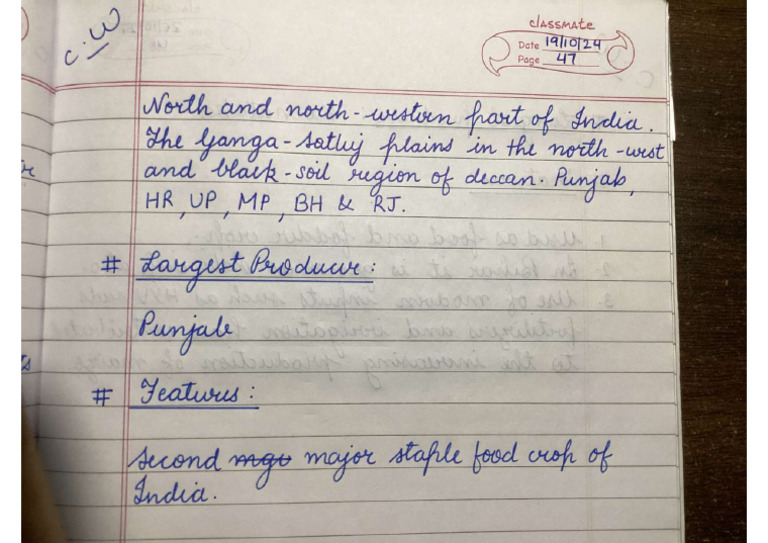 C.W
classmate
Date 19/10/24
Page 47
North and north-western part of India.
The Ganga-Satluj plains in the north-west
and black-soil region of deccan. Punjab,
HR, UP, MP, BH & RJ.
# Largest Producer:
Punjab
# Features:
second major staple food crop of
India.